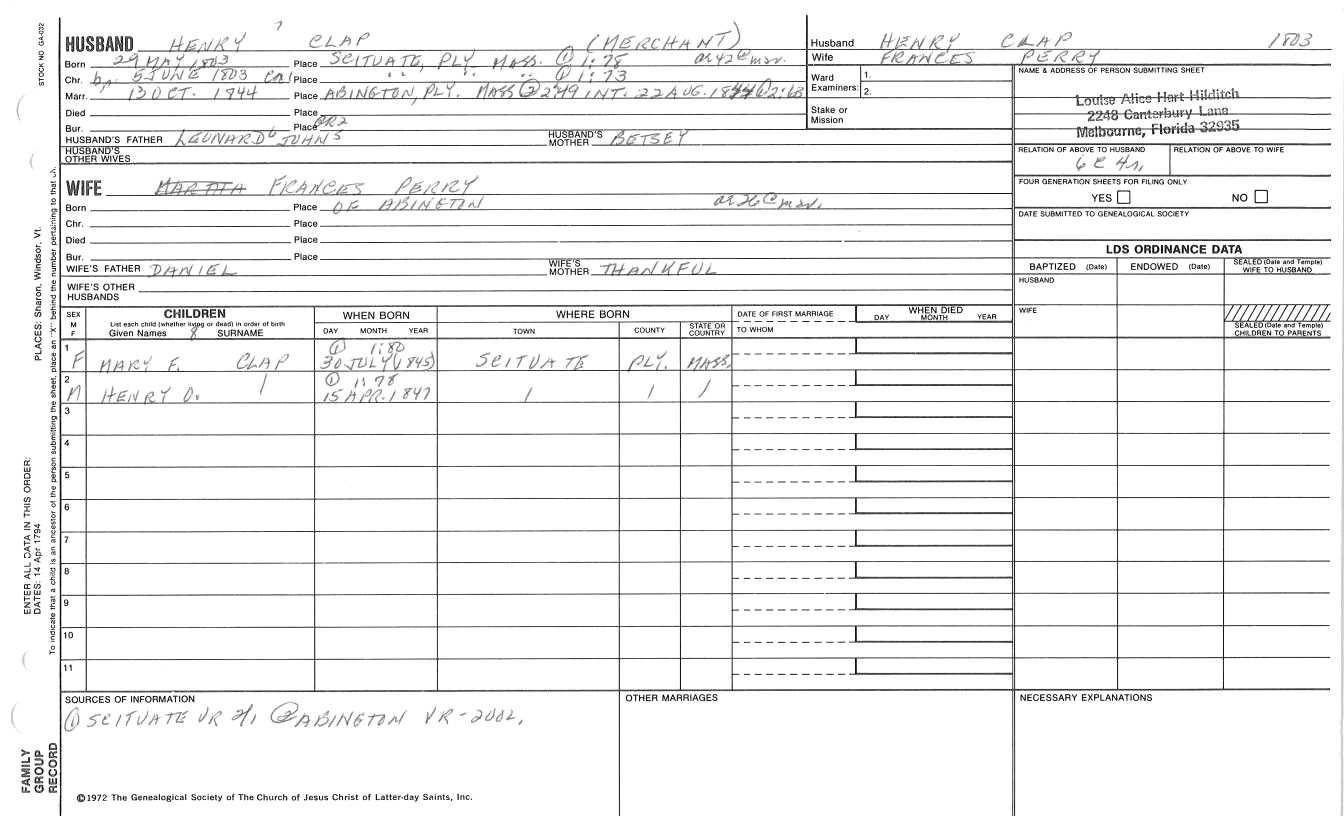 STOCK NO GA-032
7
HUSBAND HENRY CLAP (MERCHANT)
Born 29 MAY 1803 Place SCITUATE, PLY. MASS. ① 1:78
Chr. 5 JUNE 1803 Place " " " ① 1:73
Marr. 13 OCT. 1844 Place ABINGTON, PLY. MASS ② 2:49 INT. 22 AUG. 1844 ② 2:
Died Place
Bur. Place
HUSBAND'S FATHER LEONARD⁶ JOHN⁵ HUSBAND'S MOTHER BETSEY
HUSBAND'S OTHER WIVES
WIFE MARTHA FRANCES PERRY
Born Place OF ABINGTON
Chr. Place
Died Place
Bur. Place
WIFE'S FATHER DANIEL WIFE'S MOTHER THANKFUL
WIFE'S OTHER HUSBANDS
Husband HENRY CLAP 1803
Wife FRANCES PERRY
Ward Examiners: 1.
2.
Stake or Mission
NAME & ADDRESS OF PERSON SUBMITTING SHEET
Louise Alice Hart Hilditch
2248 Canterbury Lane
Melbourne, Florida 32935
RELATION OF ABOVE TO HUSBAND RELATION OF ABOVE TO WIFE
6 C 4 r,
FOUR GENERATION SHEETS FOR FILING ONLY
YES NO
DATE SUBMITTED TO GENEALOGICAL SOCIETY
LDS ORDINANCE DATA
BAPTIZED (Date) ENDOWED (Date) SEALED (Date and Temple) WIFE TO HUSBAND
HUSBAND
WIFE
SEALED (Date and Temple) CHILDREN TO PARENTS
SEX M F
CHILDREN
List each child (whether living or dead) in order of birth
Given Names 8 SURNAME
WHEN BORN
DAY MONTH YEAR
WHERE BORN
TOWN COUNTY STATE OR COUNTRY
DATE OF FIRST MARRIAGE
TO WHOM
WHEN DIED
DAY MONTH YEAR
1 ① 1:80
F MARY F. CLAP 30 JULY (1845) SCITUATE PLY. MASS.
2 ① 1:78
M HENRY O. 15 APR. 1847
3
4
5
6
7
8
9
10
11
SOURCES OF INFORMATION
① SCITUATE VR ② ABINGTON VR-
OTHER MARRIAGES
NECESSARY EXPLANATIONS
©1972 The Genealogical Society of The Church of Jesus Christ of Latter-day Saints, Inc.
PLACES: Sharon, Windsor, Vt.
ENTER ALL DATA IN THIS ORDER:
DATES: 14 Apr 1794
To indicate that a child is an ancestor of the person submitting the sheet, place an "X" behind the number pertaining to that
FAMILY GROUP RECORD